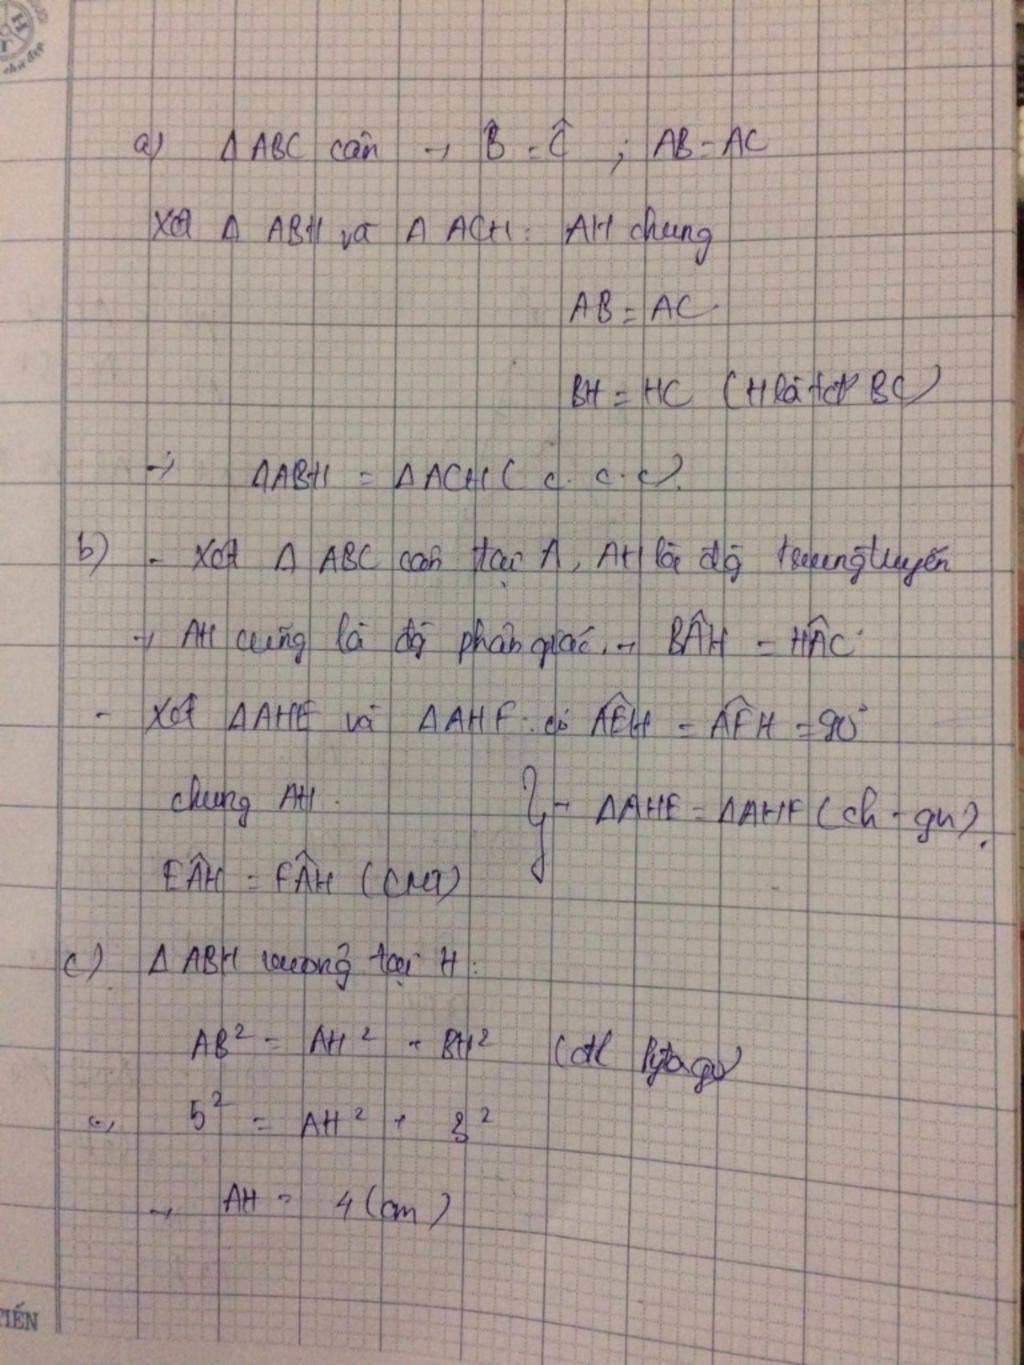 a) Δ ABC cân → B̂ = Ĉ ; AB = AC
Xét Δ ABH và Δ ACH: AH chung
AB = AC
BH = HC (H là tđ BC)
→ ΔABH = ΔACH ( c. c. c).
b) - Xét Δ ABC cân tại A, AH là đg trung tuyến
→ AH cũng là đg phân giác. → BÂH = HÂC
- Xét ΔAHE và ΔAHF: có AÊH = AF̂H = 90°
chung AH.
} → ΔAHE = ΔAHF (ch - gn).
EÂH = FÂH (CMT)
c) Δ ABH vuông tại H:
AB² = AH² + BH² (đl Pytago)
5² = AH² + 3²
→ AH = 4 (cm)
TIẾN